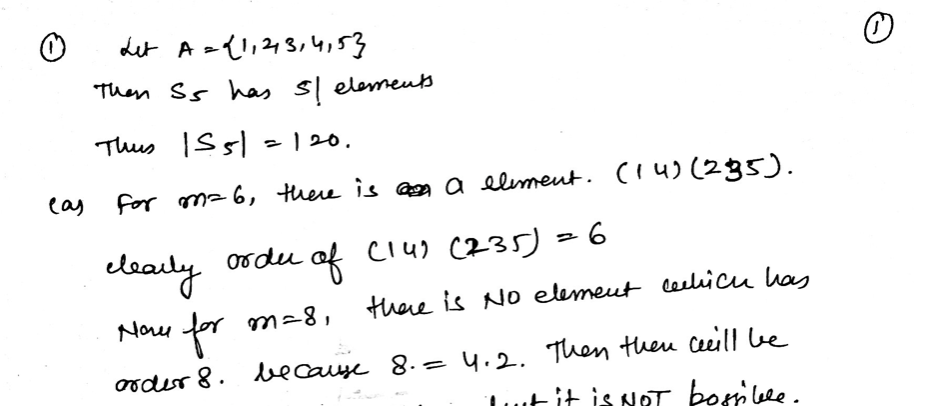 ① Let A = {1,2,3,4,5} ①
Then S5 has 5| elements
Thus |S5| = 120.
(a) For m=6, there is a element. (14)(235).
clearly order of (14) (235) = 6
Now for m=8, there is NO element which has
order 8. because 8.= 4.2. Then then will be
but it is NOT possible.